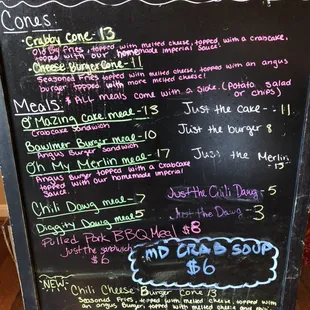 Cones:
Crabby Cone - 13
Old Bay Fries, topped with melted cheese, topped with a crabcake,
topped with our homemade imperial sauce!
Cheese Burger Cone - 11
Seasoned Fries topped with melted cheese, topped with an angus
burger topped with more melted cheese!
* All meals come with a side. (Potato salad
or chips)
Meals:
O'Mazing Cake meal - 13
Crabcake Sandwich
Just the cake - 11
Bawlmer Burger meal - 10
Angus Burger Sandwich
Just the burger 8
Oh My Merlin meal - 17
Angus Burger topped with a Crabcake
topped with our homemade imperial
sauce.
Just the Merlin
- 15
Chili Dawg meal - 7
Just the Chili Dawg - 5
Diggity Dawg meal 5
Just the Dawg - 3
Pulled Pork BBQ Meal $8
Just the sandwich
$6
MD CRAB SOUP
$6
NEW
Chili Cheese Burger Cone 13
Seasoned Fries, topped with melted cheese, topped with
an angus burger, topped with melted cheese and chili